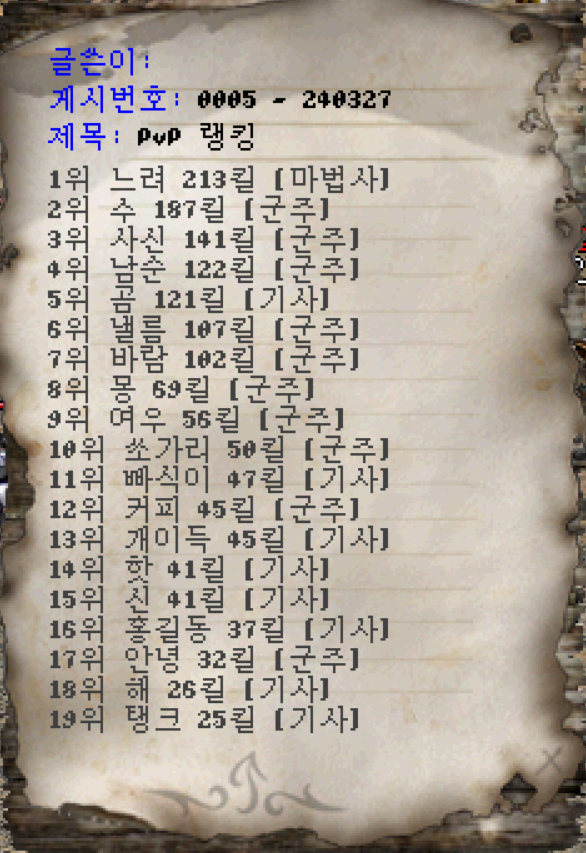 글쓴이:
게시번호: 0005 - 240327
제목: PvP 랭킹
1위 느려 213킬 [마법사]
2위 수 187킬 [군주]
3위 사신 141킬 [군주]
4위 남순 122킬 [군주]
5위 곰 121킬 [기사]
6위 낼름 107킬 [군주]
7위 바람 102킬 [군주]
8위 몽 69킬 [군주]
9위 여우 56킬 [군주]
10위 쏘가리 50킬 [군주]
11위 빠식이 47킬 [기사]
12위 커피 45킬 [군주]
13위 개이득 45킬 [기사]
14위 핫 41킬 [기사]
15위 신 41킬 [기사]
16위 홍길동 37킬 [기사]
17위 안녕 32킬 [군주]
18위 해 26킬 [기사]
19위 탱크 25킬 [기사]